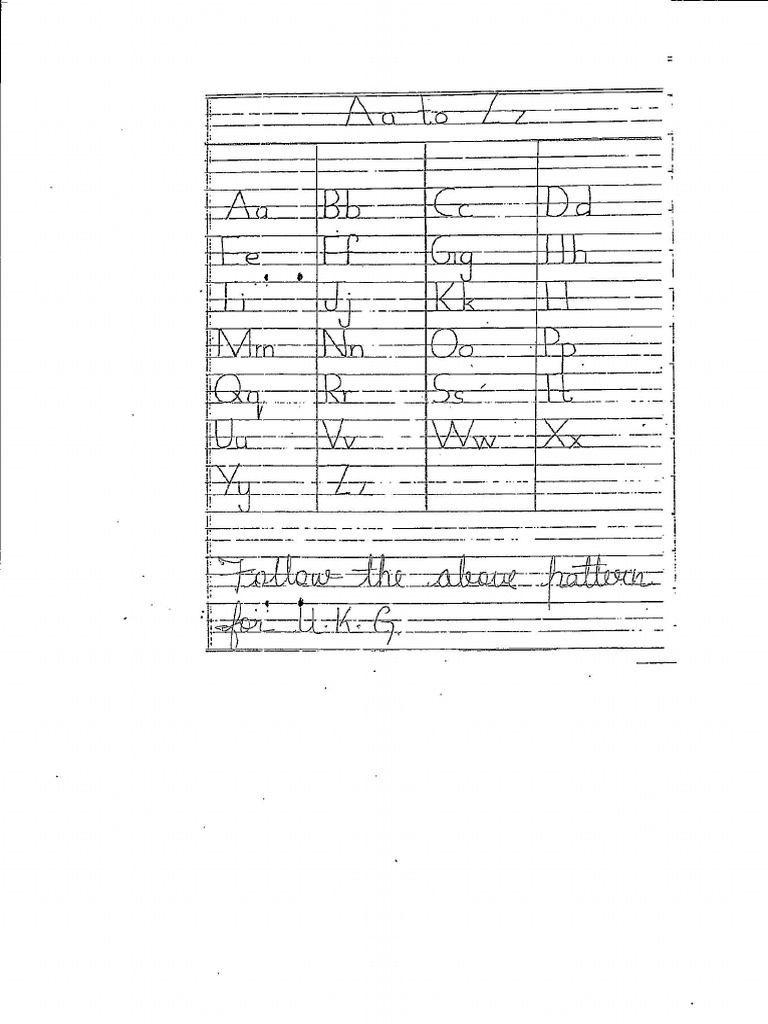 Aa to Zz
Aa Bb Cc Dd
Ee Ff Gg Hh
Ii Jj Kk Ll
Mm Nn Oo Pp
Qq Rr Ss Tt
Uu Vv Ww Xx
Yy Zz
Follow the above pattern
for U.K.G.